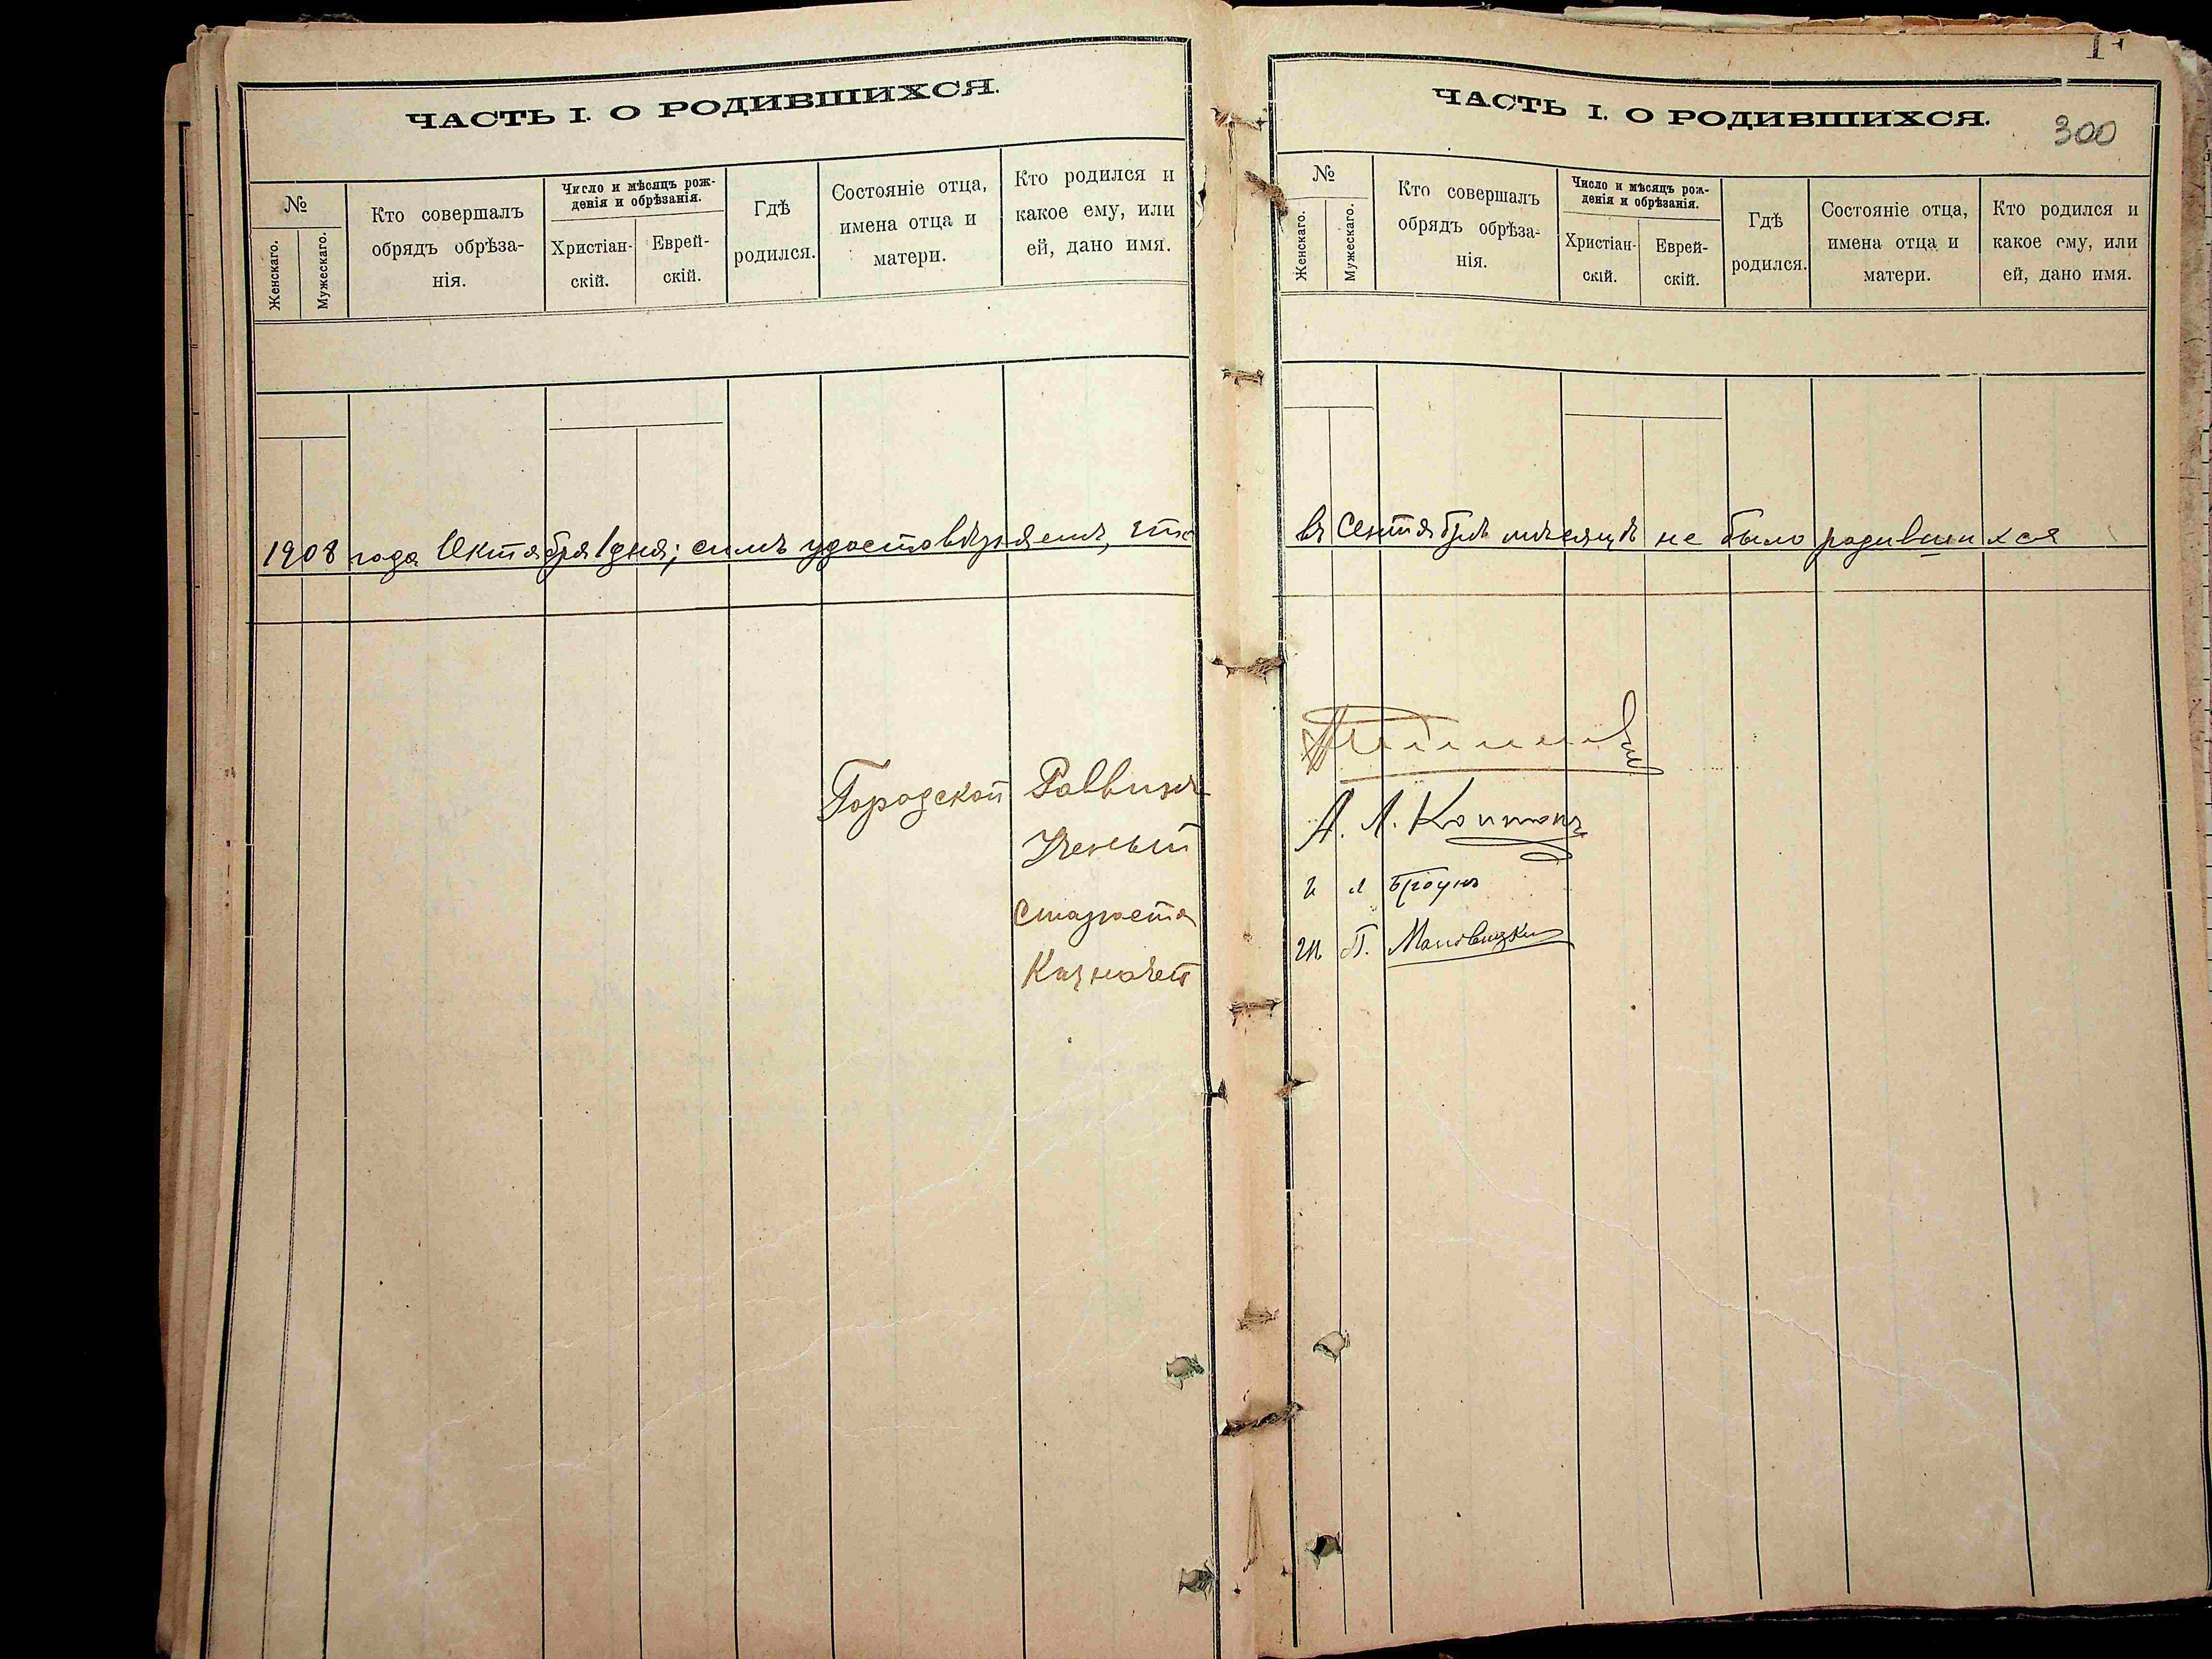 ЧАСТЬ I. О РОДИВШИХСЯ.
№
Женскаго.
Мужескаго.
Кто совершалъ
обрядъ обрѣза-
нія.
Число и мѣсяцъ рож-
денія и обрѣзанія.
Христіан-
скій.
Еврей-
скій.
Гдѣ
родился.
Состояніе отца,
имена отца и
матери.
Кто родился и
какое ему, или
ей, дано имя.
1908 года Октября 1 дня; симъ удостовѣряемъ, что
Городской Раввинъ
Ученый
Староста
Казначей
ЧАСТЬ I. О РОДИВШИХСЯ.
300
№
Женскаго.
Мужескаго.
Кто совершалъ
обрядъ обрѣза-
нія.
Число и мѣсяцъ рож-
денія и обрѣзанія.
Христіан-
скій.
Еврей-
скій.
Гдѣ
родился.
Состояніе отца,
имена отца и
матери.
Кто родился и
какое ему, или
ей, дано имя.
въ Сентябрѣ мѣсяцѣ не было родившихся
А. Л.
Броунъ
П.